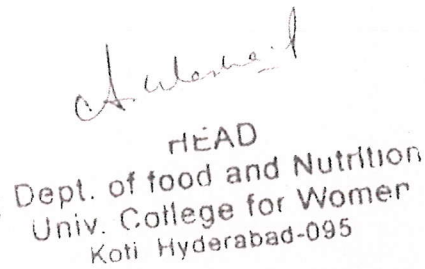 HEAD
Dept. of food and Nutrition
Univ. College for Women
Koti Hyderabad-095